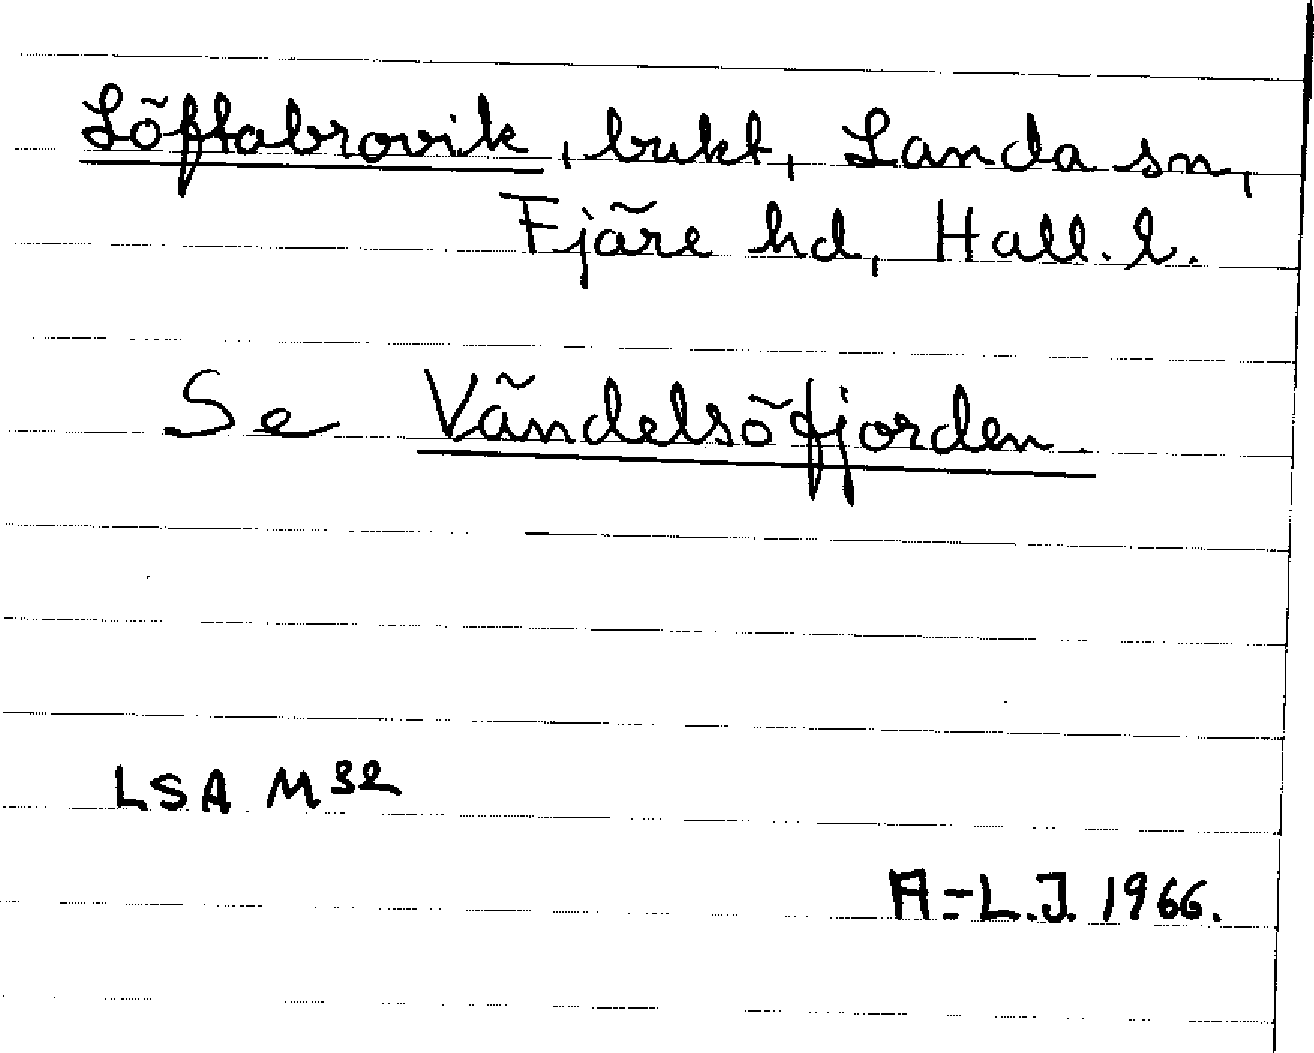 Löftabrovik, bukt, Landa sn,
Fjäre hd, Hall. l.
Se Vändelsöfjorden
LSA M32
A=L.J. 1966.